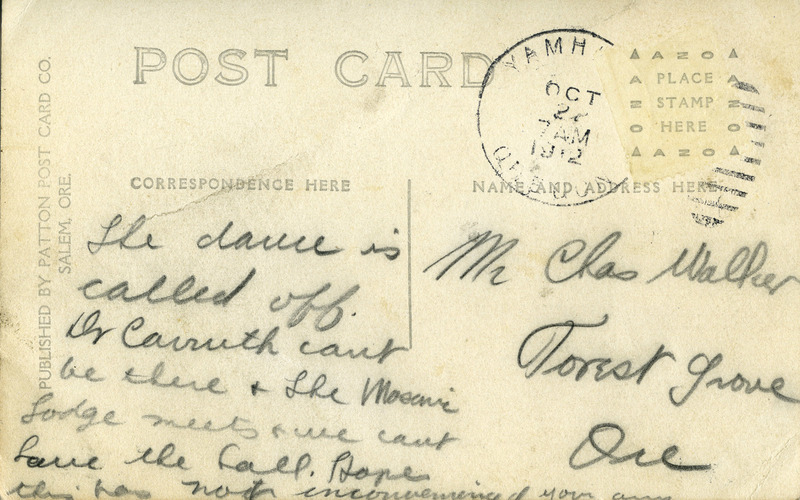 POST CARD
YAMH
OCT
22
7 AM
1912
AZO
PLACE
STAMP
HERE
AZO
CORRESPONDENCE HERE
NAME AND ADDRESS HERE
PUBLISHED BY PATTON POST CARD CO.
SALEM, ORE.
The dance is
called off.
Dr Carruth cant
be there + the Masonic
Lodge meets + we cant
have the hall. Hope
this has not inconvenienced your
Mr Chas Walker
Forest Grove
Ore